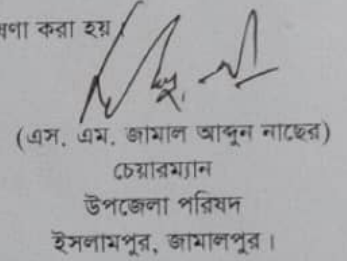 ষণা করা হয়।
(এস. এম. জামাল আব্দুন নাছের)
চেয়ারম্যান
উপজেলা পরিষদ
ইসলামপুর, জামালপুর।